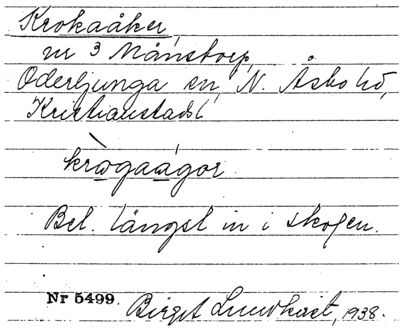 Krokaåker,
nr 3 Månstorp,
Oderljunga sn, N. Åsbo hd,
Kristianstads l.
krògaágor
Bel. längst in i skogen.
Nr 5499. Birgit Lundkvist, 1938.